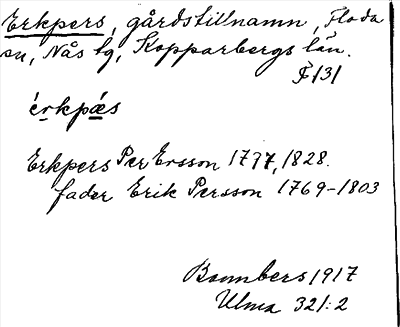 Erkpers, gårdstillnamn, Floda
sn, Nås tg, Kopparbergs län.
₵131
érkpǽs
Erkpers Per Ersson 1797, 1828.
fader Erik Persson 1769-1803
Bannbers 1917
Ulma 321:2